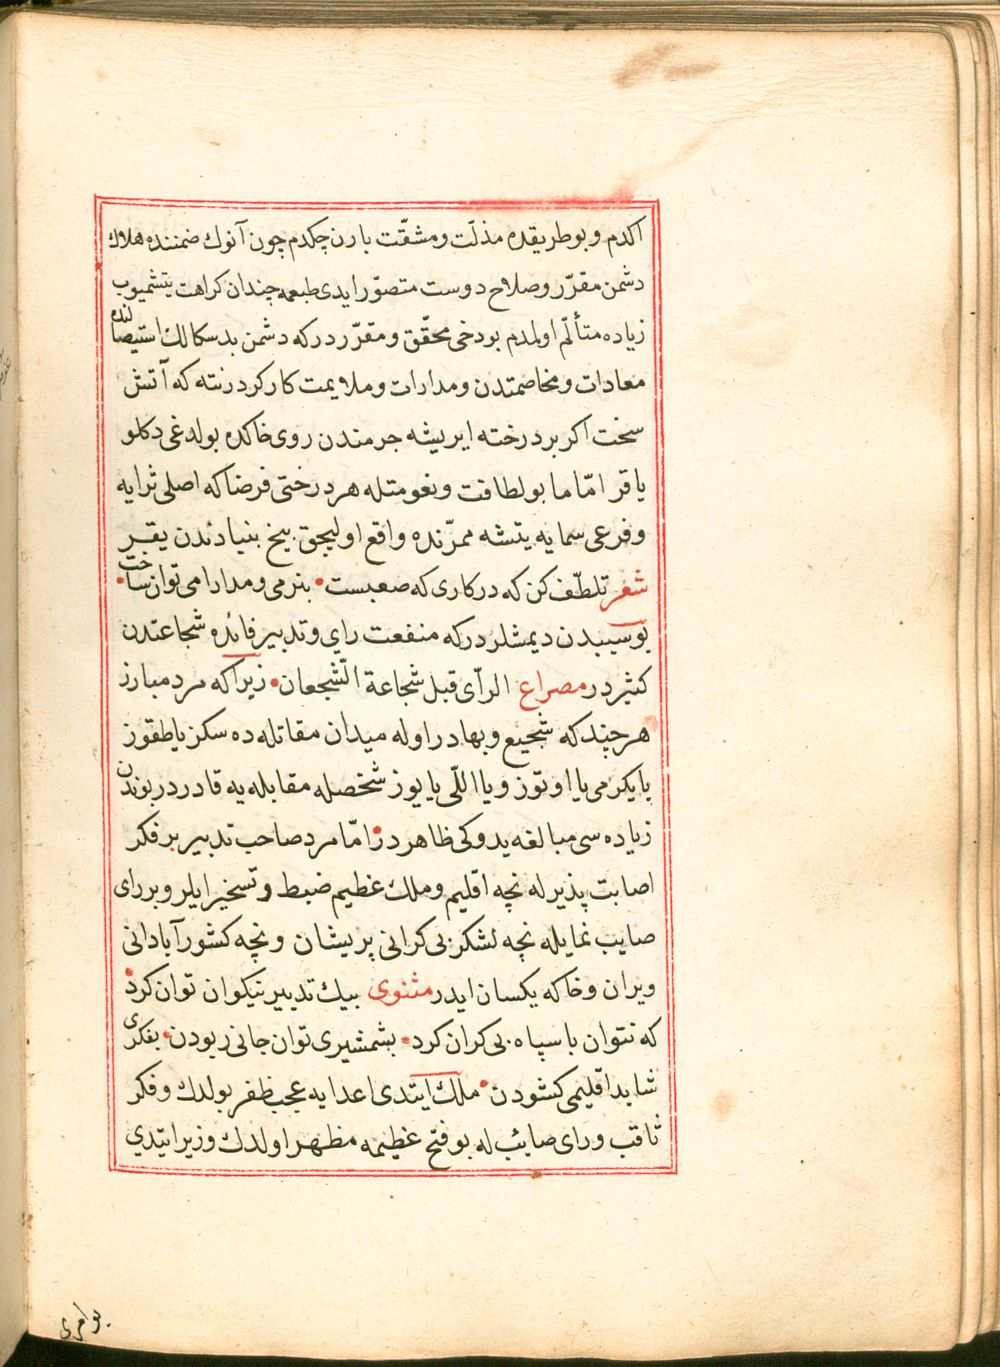 اكدم وبوطريقده مذلّت ومشقّت بارن چكدم چون آنوك ضمننده هلاك
دشمن مقرّر وصلاح دوست متصوّر ايدى طبعمه چندان كراهت يتشميوب
زياده متألّم اولمدم بودخى محقّق ومقرّردركه دشمن بدسكالك استيصالنده
معادات ومخاصمتدن ومدارات وملايمت كاركردرنته كه آتش
سخت اكر بر درخته ايريشه جرمندن روى خاكده بولدغى دكلو
ياقر امّا ما بولطافت ونعومتله هر درختى فرضا كه اصلى ثرايه
وفرعى سمايه يتشه ممرّنده واقع اوليجق بيخ بنيادندن يقر
شعر تلطّف كن كه در كارى كه صعبست • بنرمى ومدارا مى توان ساخت •
بوسببدن ديمشلردركه منفعت راى وتدبير فائده شجاعتدن
كثيردر مصراع الرأى قبل شجاعة الشّجعان • زيرا كه مرد مبارز
هرچند كه شجيع وبهادر اوله ميدان مقاتله ده سكز ياطقوز
يايكرمى يا اوتوز ويا اللّى يايوز شخصله مقابله يه قادردر بوندن
زياده سى مبالغه يدوكى ظاهردر • امّا مرد صاحب تدبير بر فكر
اصابت پذيرله نچه اقليم وملك عظيم ضبط وتسخير ايلر وبرراى
صايب نمايله نچه لشكر بى كرانى پريشان ونچه كشور آبادانى
ويران وخاكه يكسان ايدر مثنوى بيك تدبير نيكوان توان كرد •
كه نتوان با سپاه بى كران كرد • بشمشيرى توان جانى ربودن • بفكرى
شايد اقليمى كشودن • ملك ايتدى اعدايه عجب ظفر بولدك وفكر
ثاقب وراى صائب له بو فتح عظيمه مظهر اولدك وزير ايتدي
بو امرى